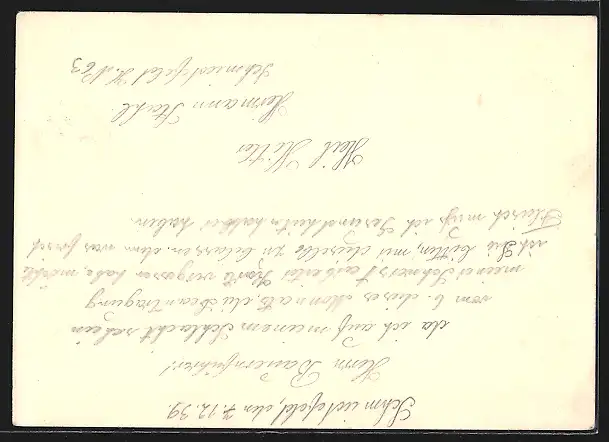 Schmiedefeld, den 7.12.39.
Herrn Bauernführer!
da ich auf meinem Schlachtschein
vom 6. dieses Monnats, die Beantragung
meines Schweis auf eiter Karte vergessen habe, möchte
ich Sie bitten, mir dieselbe zu belassen, denn
Fleisch muß ich Gesundheitshalber haben.
Heil Hitler
Hermann Stahl
Schmiedefeld H. N 63